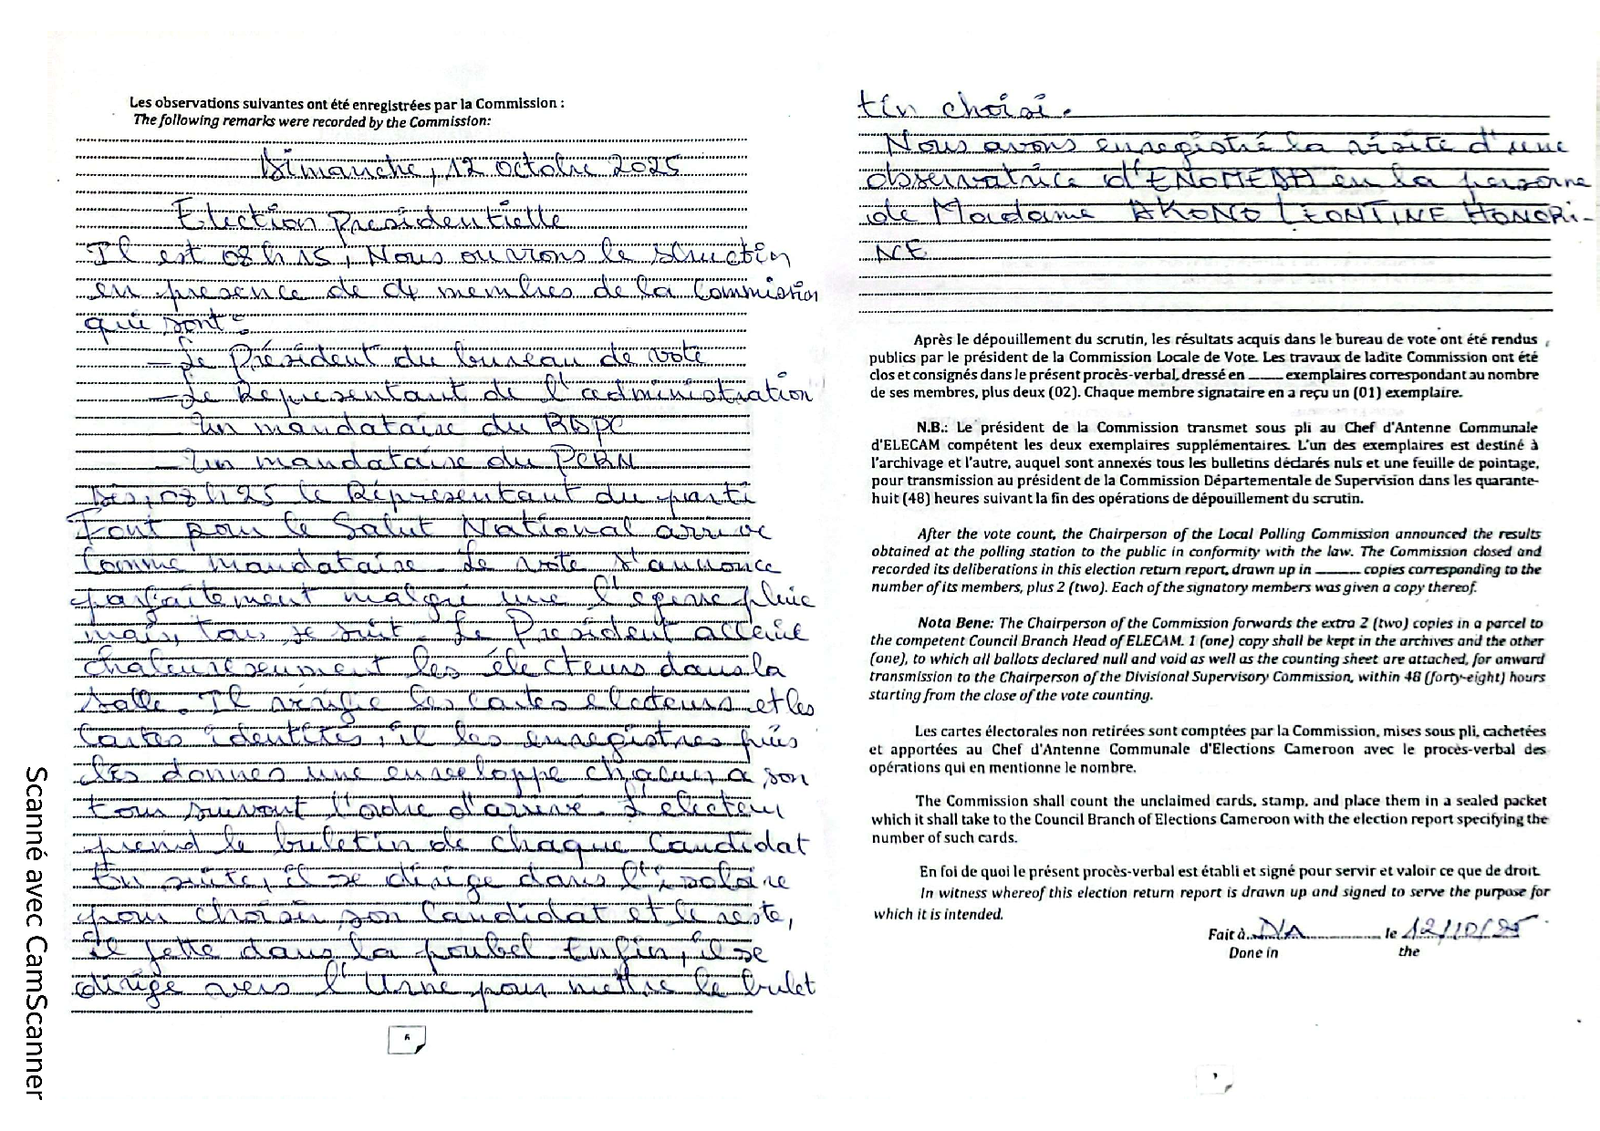 Les observations suivantes ont été enregistrées par la Commission :
The following remarks were recorded by the Commission:
Dimanche, 12 octobre 2025
Election presidentielle
Il est 08h15, Nous ouvrons le
en presence de 04 membres de la Commission
qui sont :
- Le Président du bureau de vote
- Le Représentant de l'administration
- Un mandataire du RDPC
- Un mandataire du PCRN
Dès, 08h25 le Réprésentant du parti
Front pour le Salut National arrive
Comme mandataire. Le vote s'annonce
parfaitement malgré une l'egere pluie
mais, tout se suit. Le President
chaleureusement les électeurs dans la
salle. Il vérifie les cartes electeurs et les
Cartes identités, il les enregistres puis
les donnes une enveloppe chacun a son
tour suivant l'ordre d'arrivé. L'electeur
prend le buletin de chaque Candidat
En suite, il se dirige dans l'isoloire
pour choisir son Candidat et le reste,
il jette dans la poubel Enfin, il se
dirige vers l'Urne pour mettre le bulet
6
tin choisi.
Nous avons enregistré la visite d'une
observatrice d' en la personne
de Madame AKONO LEONTINE HONORI-
NE
Après le dépouillement du scrutin, les résultats acquis dans le bureau de vote ont été rendus
publics par le président de la Commission Locale de Vote. Les travaux de ladite Commission ont été
clos et consignés dans le présent procès-verbal, dressé en ____ exemplaires correspondant au nombre
de ses membres, plus deux (02). Chaque membre signataire en a reçu un (01) exemplaire.
N.B.: Le président de la Commission transmet sous pli au Chef d'Antenne Communale
d'ELECAM compétent les deux exemplaires supplémentaires. L'un des exemplaires est destiné à
l'archivage et l'autre, auquel sont annexés tous les bulletins déclarés nuls et une feuille de pointage,
pour transmission au président de la Commission Départementale de Supervision dans les quarante-
huit (48) heures suivant la fin des opérations de dépouillement du scrutin.
After the vote count, the Chairperson of the Local Polling Commission announced the results
obtained at the polling station to the public in conformity with the law. The Commission closed and
recorded its deliberations in this election return report, drawn up in ____ copies corresponding to the
number of its members, plus 2 (two). Each of the signatory members was given a copy thereof.
Nota Bene: The Chairperson of the Commission forwards the extra 2 (two) copies in a parcel to
the competent Council Branch Head of ELECAM. 1 (one) copy shall be kept in the archives and the other
(one), to which all ballots declared null and void as well as the counting sheet are attached, for onward
transmission to the Chairperson of the Divisional Supervisory Commission, within 48 (forty-eight) hours
starting from the close of the vote counting.
Les cartes électorales non retirées sont comptées par la Commission, mises sous pli, cachetées
et apportées au Chef d'Antenne Communale d'Elections Cameroon avec le procès-verbal des
opérations qui en mentionne le nombre.
The Commission shall count the unclaimed cards, stamp, and place them in a sealed packet
which it shall take to the Council Branch of Elections Cameroon with the election report specifying the
number of such cards.
En foi de quoi le présent procès-verbal est établi et signé pour servir et valoir ce que de droit.
In witness whereof this election return report is drawn up and signed to serve the purpose for
which it is intended.
Fait à le 12/10/25
Done in the
Scanné avec CamScanner